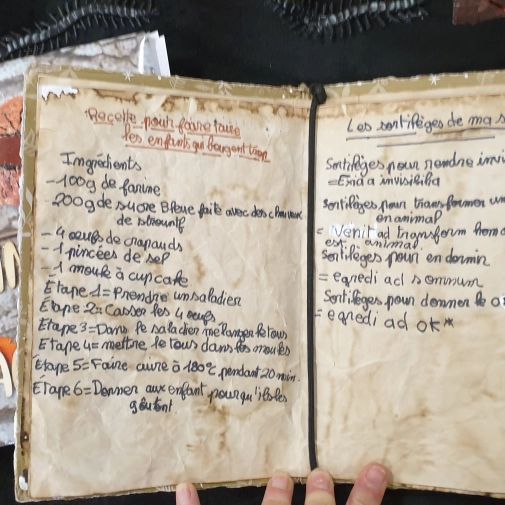 Recette pour faire taire
les enfants qui bougent trop
Ingrédients
-100g de farine
-200g de sucre Bleue faite avec des cheveux
de stroumf
- 4 œufs de crapauds
- 1 pincées de sel
- 1 moule à cupcake
Étape 1= Prendre un saladier
Étape 2= Casser les 4 œufs
Étape 3= Dans le saladier mélanger le tous
Étape 4= mettre le tous dans les moules
Étape 5= Faire cuire à 180°C pendant 20 min.
Étape 6= Donner aux enfant pour qu'ils les
goûtent
Les sortilèges de ma s
Sortilèges pour rendre invi
= Exid a invisibilia
Sortilèges pour transformer un
en animal
= Venit ad transform homo
est. animal.
Sortilèges pour endormir
= egredi ad somnum
Sortilèges pour donner le
= egredi ad ok*